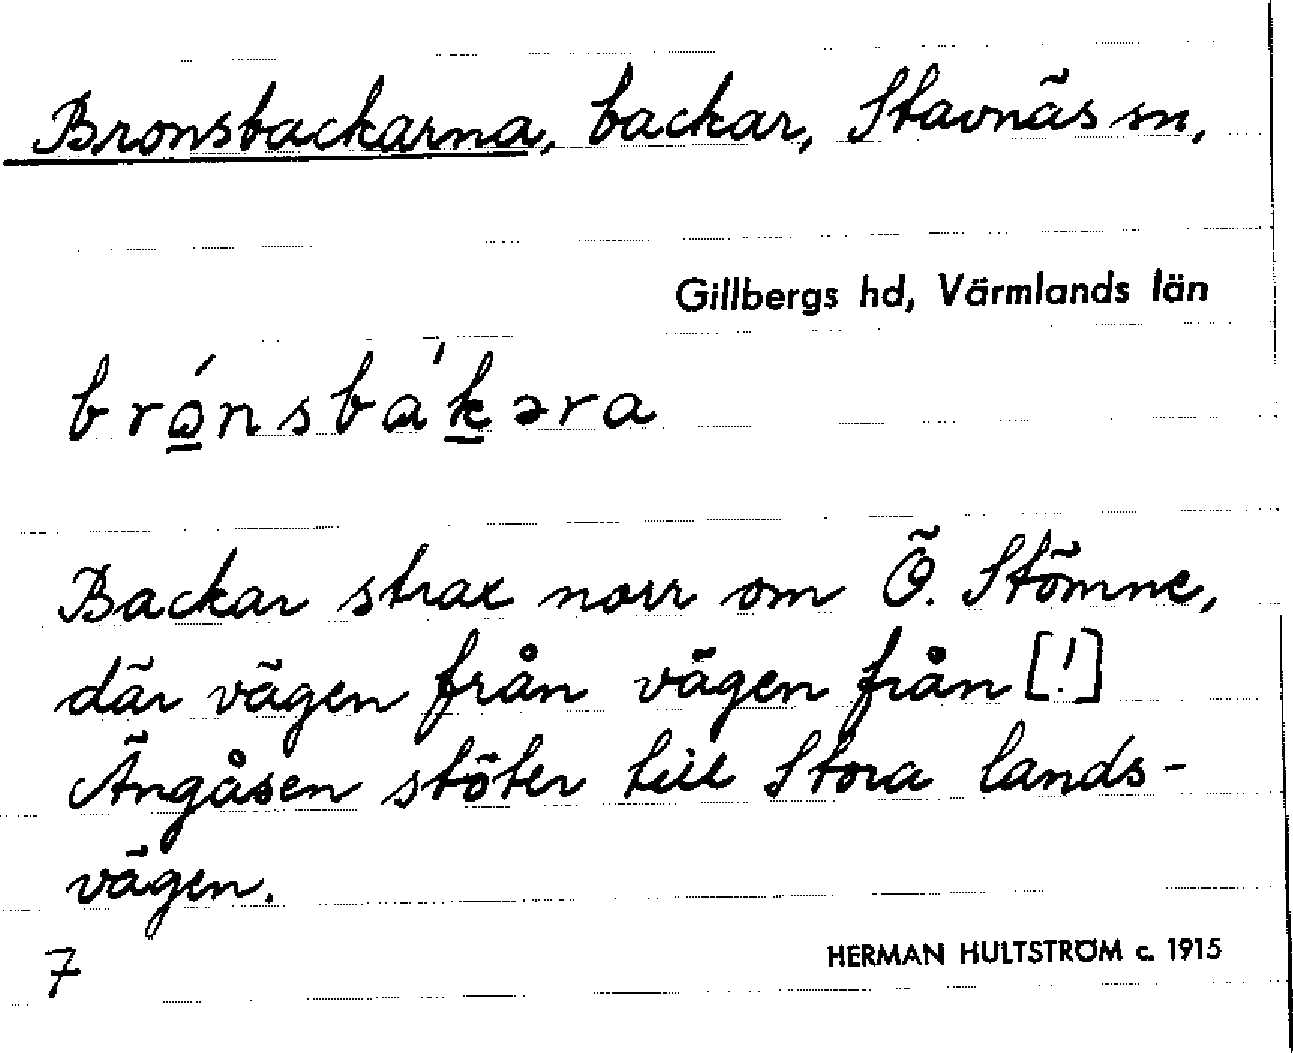 Bronsbackarna, backar, Stavnäs sn,
Gillbergs hd, Värmlands län
brǫ́nsba'k̲əra
Backar strax norr om Ö. Stömne,
där vägen från vägen från [!]
Ängåsen stöter till Stora lands-
vägen.
7
HERMAN HULTSTRÖM c. 1915